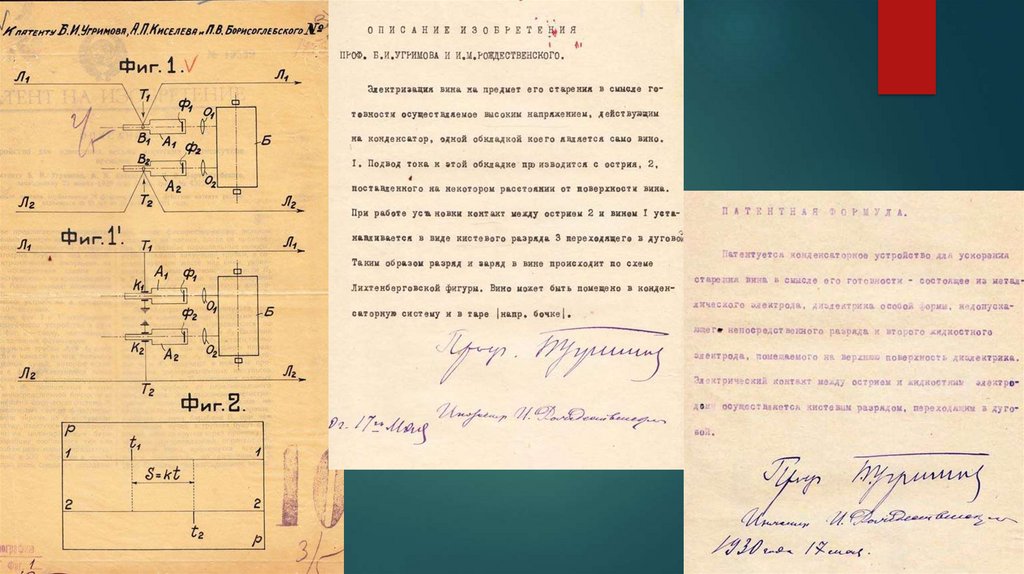 К ПАТЕНТУ Б.И.УГРИМОВА, А.П.КИСЕЛЕВА и П.В.БОРИСОГЛЕБСКОГО №
Фиг.1. V
Л1 Л1
Т1
Ф1
О1
В1 А1
Б
Ф2
В2
О2
А2
Т2
Л2 Л2
Фиг.1'.
Л1 Т1 Л1
А1 Ф1
К1
О1
Ф2
Б
К2 А2 О2
Л2 Л2
Т2
Фиг.2.
P
t1
1 1
S=kt
2 2
t2
P
10
3/-
Фиг. 1
ОПИСАНИЕ ИЗОБРЕТЕНИЯ
ПРОФ. Б.И.УГРИМОВА И И.М.РОЖДЕСТВЕНСКОГО.
Электризация вина на предмет его старения в смысле го-
товности осуществляемое высоким напряжением, действующим
на конденсатор, одной обкладкой коего является само вино.
I. Подвод тока к этой обкладке производится с острия, 2,
поставленного на некотором расстоянии от поверхности вина.
При работе установки контакт между острием 2 и вином I уста-
навливается в виде кистевого разряда 3 переходящего в дуговой
Таким образом разряд и заряд в вине происходит по схеме
Лихтенберговской фигуры. Вино может быть помещено в конден-
саторную систему и в таре |напр. бочке|.
Проф. БУгримов
0 г. 17го Мая Инженер И. Рождественский
ПАТЕНТНАЯ ФОРМУЛА.
Патентуется конденсаторное устройство для ускорения
старения вина в смысле его готовности - состоящее из метал-
лического электрода, диэлектрика особой формы, недопуска-
ющего непосредственного разряда и второго жидкостного
электрода, помещаемого на верхнюю поверхность диэлектрика.
Электрический контакт между острием и жидкостным электро-
дом осуществляется кистевым разрядом, переходящим в дуго-
вой.
Проф БУгримов
Инженер И. Рождественский
1930 года 17 мая.